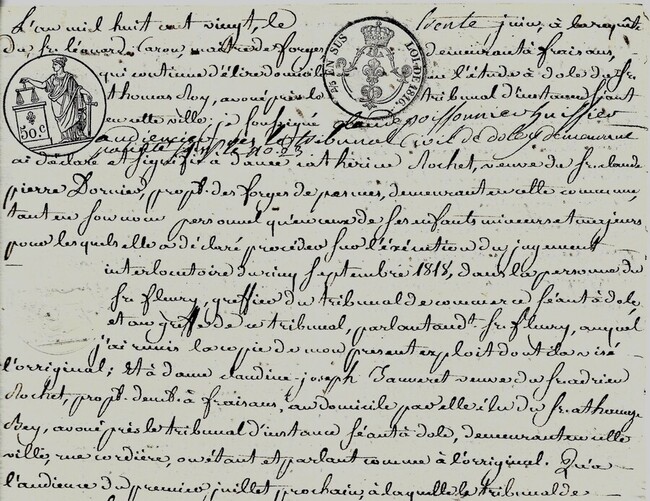 L'an mil huit cent vingt, le trente juin, à la requête
du sr. léonard Caron, maître de forges demeurant à fraisans,
qui continue d'élire domicile en l'étude à dole du sr.
thomas Rey, avoué près le tribunal d'instance séant
en cette ville; je soussigné claude poissonnier huissier
audiencier près le tribunal Civil de dole y demeurant
ai déclaré et signifié à dame catherine Rochet, veuve du sr. claude
pierre Dornier, propre. des forges de pesmes, demeurant en cette commune,
tant en son nom personnel qu'en ceux de ses enfants mineurs et majeurs
pour lesquels elle a déclaré procéder sur l'éxécution du jugement
interlocutoire du cinq septembre 1818, dans la personne du
sr. fleury, greffier du tribunal de commerce séant à dole,
et au greffe de ce tribunal, parlant au dt. sr. fleury, auquel
j'ai remis la copie de mon présent exploit dont il a visé
l'original; Et à dame claudine joseph veuve du sr. adrien
Rochet, propre. demt. à fraisans, au domicile par elle élu du sr. thomas
Rey, avoué près le tribunal d'instance séant à dole, demeurant en cette
ville, rue cordière, où étant et parlant comme à l'original. Qu'à
l'audience du premier juillet prochain, à laquelle le tribunal de
EN SUS
LOI DE 1816.
50 c